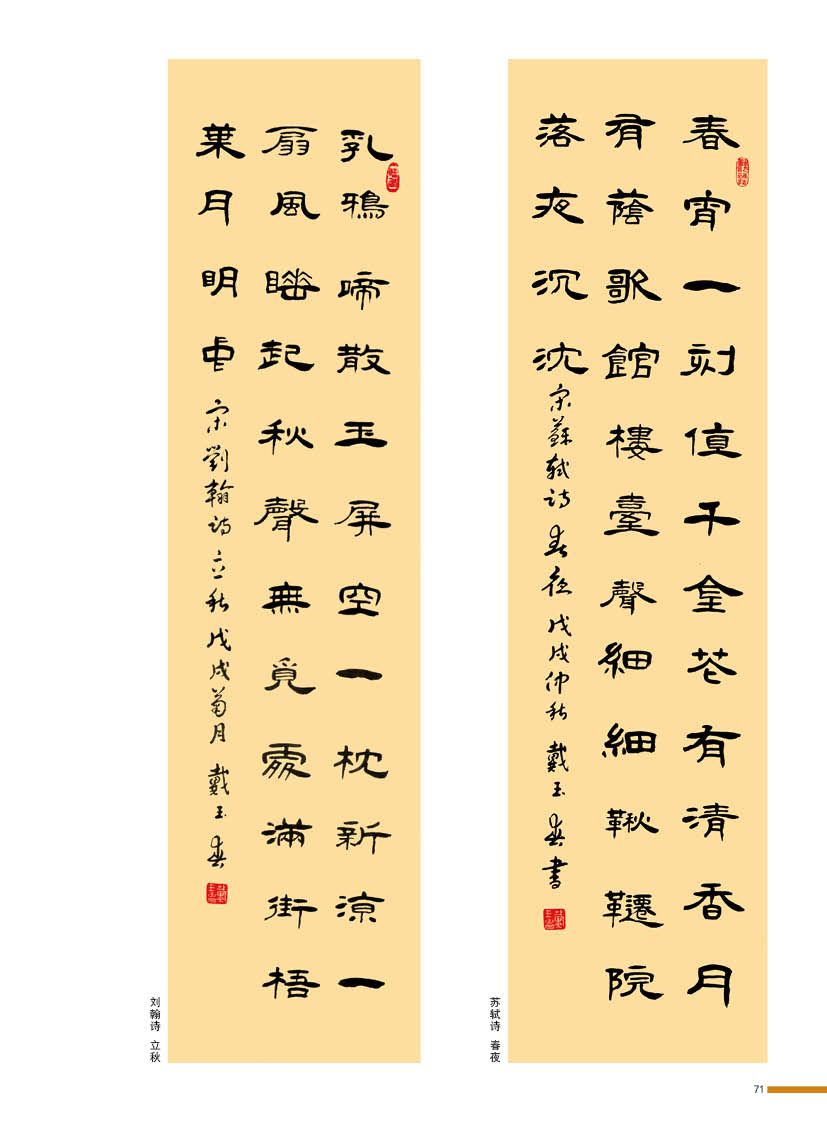 春宵一刻值千金花有清香月
有蔭歌館樓臺聲細細鞦韆院
落夜沉沈 宋蘇軾詩 春夜 戊戌仲秋 戴玉春書
苏轼诗 春夜
乳鴉啼散玉屏空一枕新涼一
扇風睡起秋聲無覓處滿街梧
葉月明中 宋劉翰詩 立秋 戊戌菊月 戴玉春
刘翰诗 立秋
71